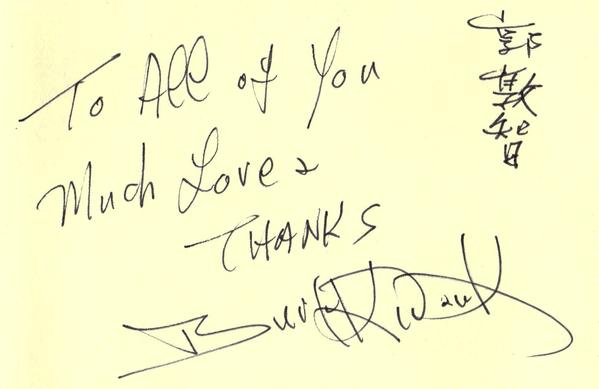 To All of You
Much Love &
THANKS
Burt Kwouk